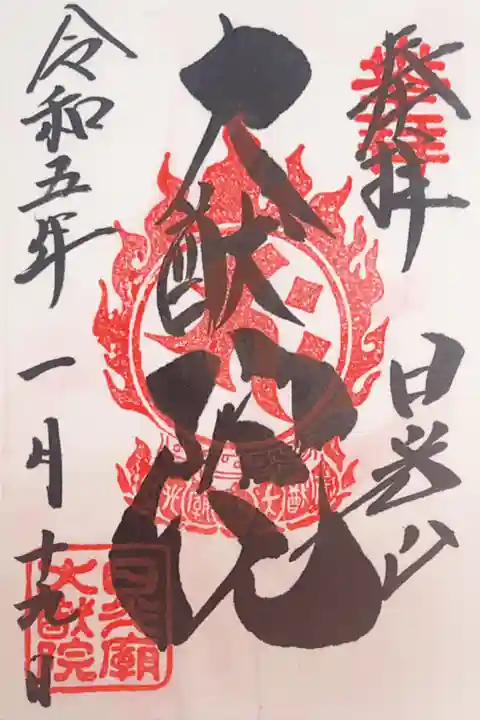 奉拝
日光山
大猷院
令和五年
一月十九日
日光廟
大猷院